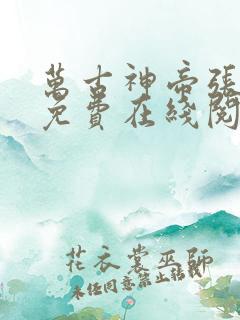 萬古神帝張
免費在綫閱
花衣裳巫師
未經同意禁止轉載